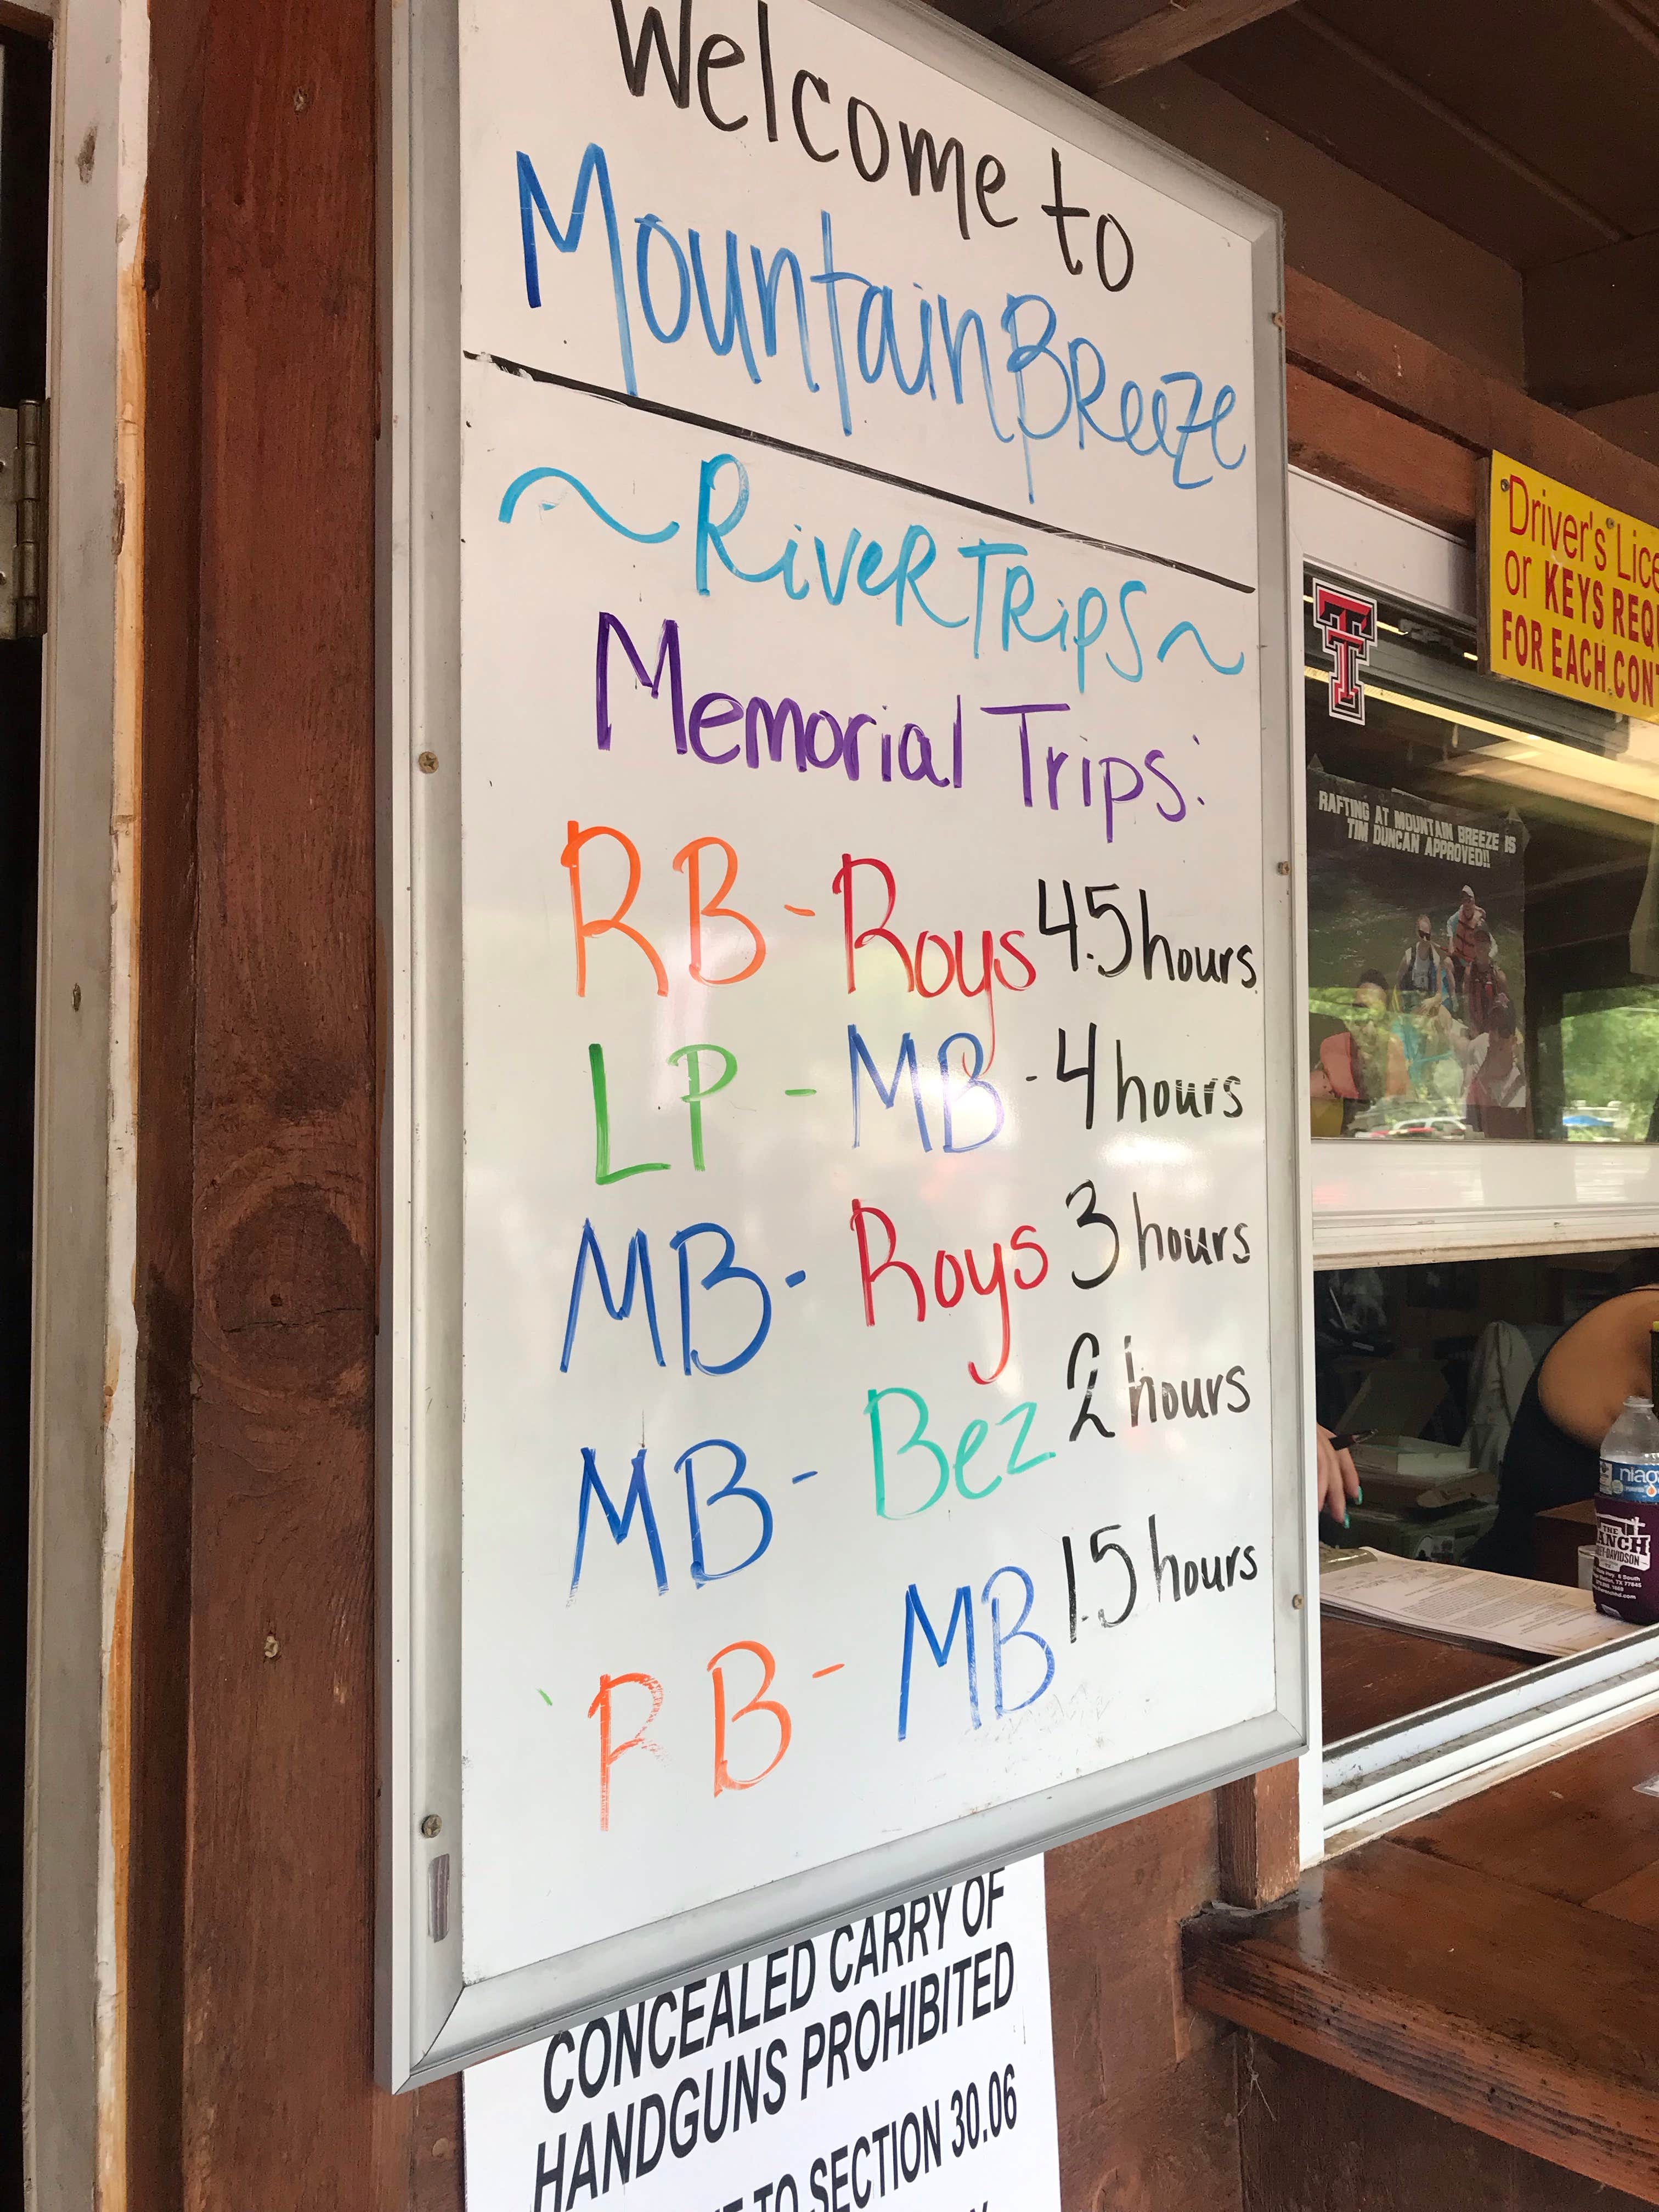 Welcome to
Mountain Breeze
~ River Trips ~
Memorial Trips:
RB - Roys 4.5 hours
LP - MB - 4 hours
MB - Roys 3 hours
MB - Bez 2 hours
RB - MB 1.5 hours
CONCEALED CARRY OF
HANDGUNS PROHIBITED
TO SECTION 30.06
Driver's Lice
or KEYS REQU
FOR EACH CON
TT
RAFTING AT MOUNTAIN BREEZE IS
TIM DUNCAN APPROVED!!
niag
THE
ANCH